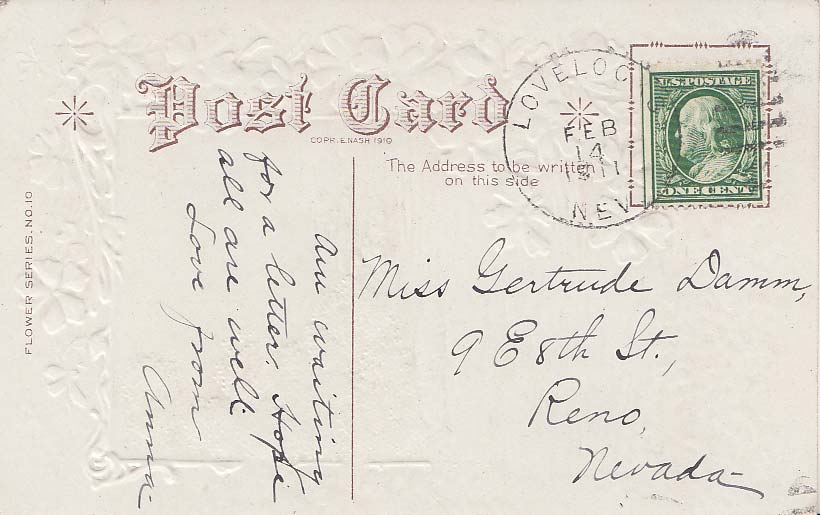 Post Card
COPR. E. NASH 1910
The Address to be written
on this side
FLOWER SERIES. NO. 10
LOVELOC
FEB
14
1911
NEV
U.S. POSTAGE
ONE CENT
Am waiting
for a letter. Hope
all are well.
Love from
Anna
Miss Gertrude Damm,
9 E 8th St.,
Reno,
Nevada